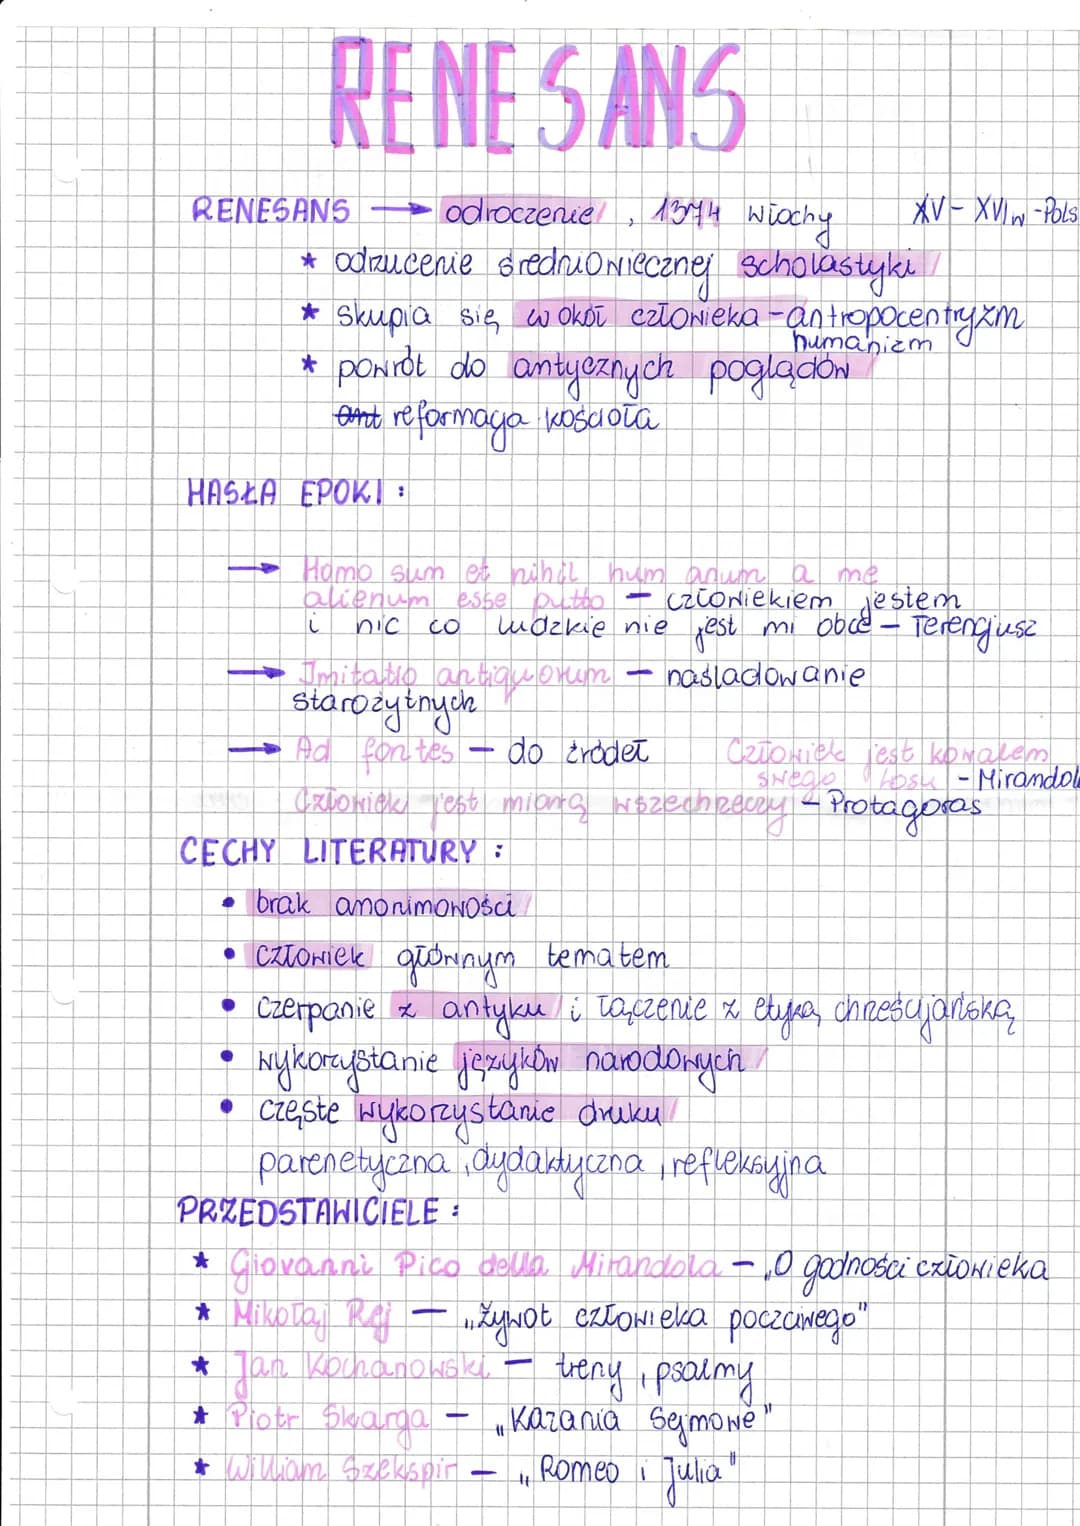 RENESANS
RENESANS → odroczenie, 1374 Włochy XV - XVI w - Pols
* odrzucenie średniowiecznej scholastyki
* skupia się wokół człowieka - antropocentryzm
humanizm
* powrót do antycznych poglądów
ant reformacja kościoła
HASŁA EPOKI :
→ Homo sum et nihil hum anum a me
alienum esse putto - człowiekiem jestem
i nic co ludzkie nie jest mi obce - Terencjusz
→ Imitatio antiquorum - naśladowanie
starożytnych
→ Ad fontes - do źródeł Człowiek jest kowalem
swego losu - Mirandola
Człowiek jest miarą wszechrzeczy - Protagoras
CECHY LITERATURY :
• brak anonimowości
• człowiek głównym tematem
• czerpanie z antyku i łączenie z etyką chrześcijańską
• wykorzystanie języków narodowych
• częste wykorzystanie druku
parenetyczna, dydaktyczna, refleksyjna
PRZEDSTAWICIELE :
* Giovanni Pico della Mirandola - „O godności człowieka
* Mikołaj Rej - „Żywot człowieka poczciwego"
* Jan Kochanowski - treny, psalmy
* Piotr Skarga - „Kazania Sejmowe"
* William Szekspir - „Romeo i Julia"